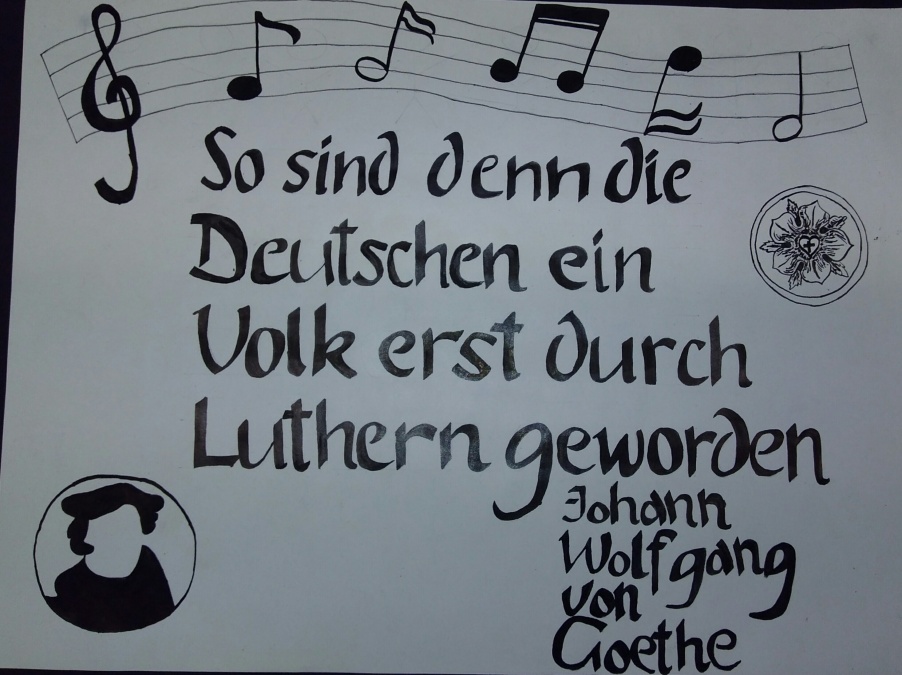 So sind denn die
Deutschen ein
Volk erst durch
Luthern geworden
Johann
Wolfgang
von
Goethe